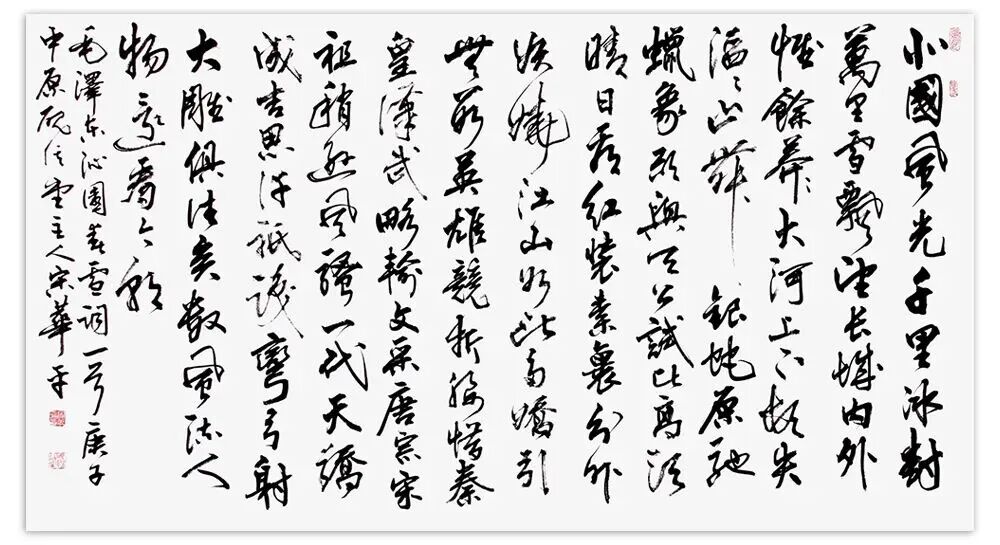 北國風光千里冰封
萬里雪飄望长城内外
惟餘莽々大河上下頓失
滔々山舞銀蛇原馳
蠟象欲與天公試比高須
晴日看红裝素裹分外
妖嬈江山如此多嬌引
無數英雄競折腰惜秦
皇漢武略輸文采唐宗宋
祖稍遜風騷一代天驕
成吉思汗祇識彎弓射
大雕俱往矣數風流人
物還看今朝
毛澤东沁園春雪詞一首庚子
中原砚信堂主人宋華平